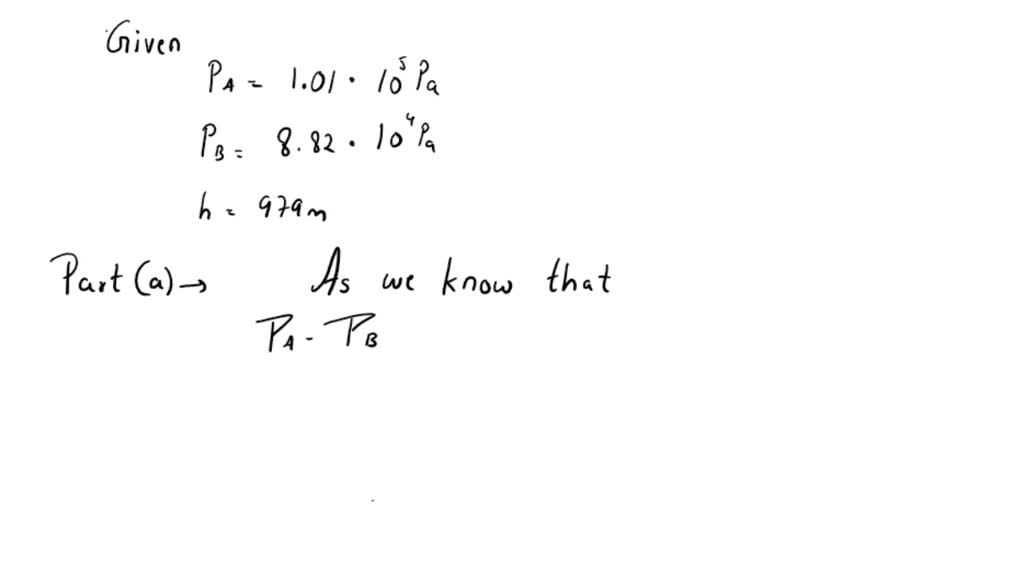 Given
P_A = 1.01 · 10^5 Pa
P_B = 8.82 · 10^4 Pa
h = 979m
Part (a) → As we know that
P_A - P_B